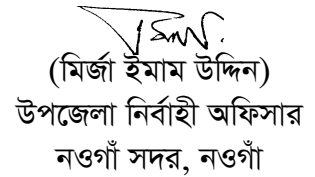 (মির্জা ইমাম উদ্দিন)
উপজেলা নির্বাহী অফিসার
নওগাঁ সদর, নওগাঁ